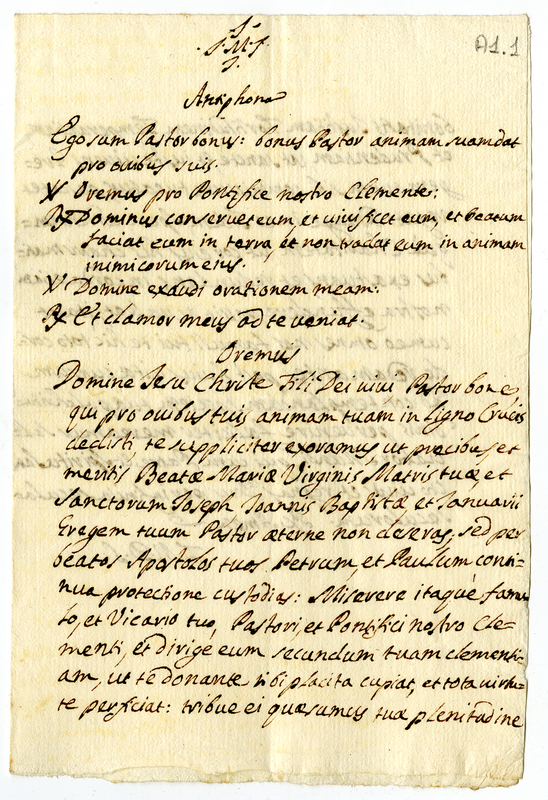 J.
J.M.J.
J.
A1.1
Antiphona
Ego sum Pastor bonus: bonus Pastor animam suam dat
pro ovibus suis.
V Oremus pro Pontifice nostro Clemente:
R Dominus conservet eum, et vivificet eum, et beatum
faciat eum in terra, et non tradat eum in animam
inimicorum eius.
V Domine exaudi orationem meam:
R Et clamor meus ad te veniat.
Oremus
Domine Iesu Christe Fili Dei vivi Pastor bone,
qui pro ovibus tuis animam tuam in Ligno Crucis
dedisti, te suppliciter exoramus, ut precibus et
meritis Beatæ Mariæ Virginis Matris tuæ et
Sanctorum Ioseph Ioannis Baptistæ et Ianuarii
Gregem tuum Pastor æterne non deseras, sed per
beatos Apostolos tuos Petrum, et Paulum conti=
nua protectione custodias: Miserere itaque famu
lo, et Vicario tuo, Pastori, et Pontifici nostro Cle=
menti, et dirige eum secundum tuam clementi=
am, ut te donante tibi placita cupiat, et tota virtu=
te perficiat: tribue ei quæsumus tuæ plenitudine